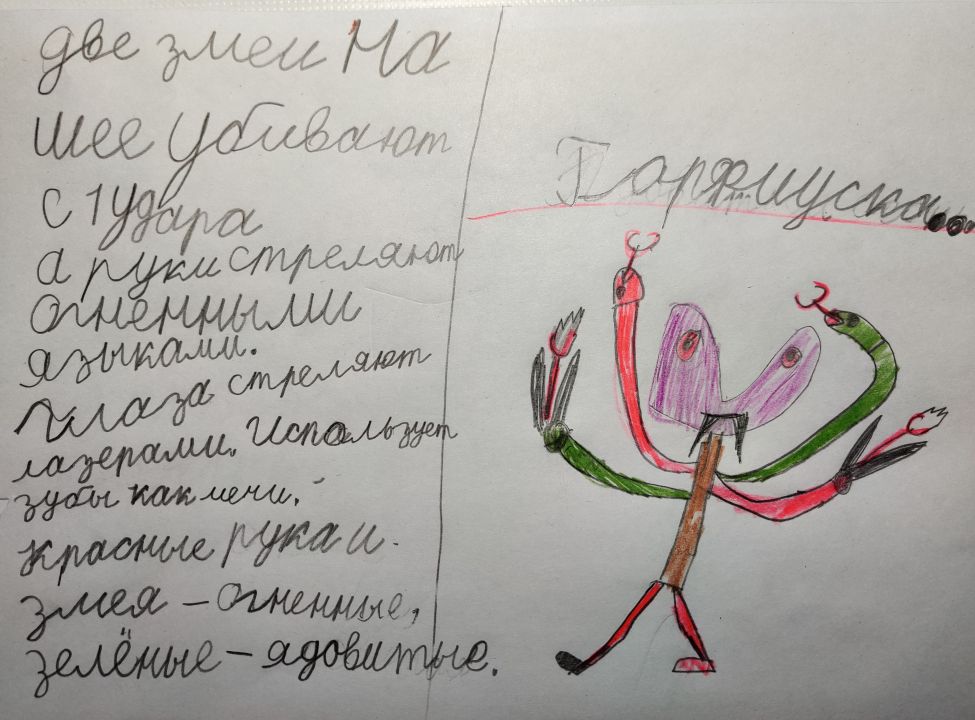 две змеи На
шее убивают
с 1 удара
а руки стреляют
огненными
языками.
Глаза стреляют
лазерами. Использует
зубы как мечи.
Красные рука и
змея – огненные,
зелёные – ядовитые.